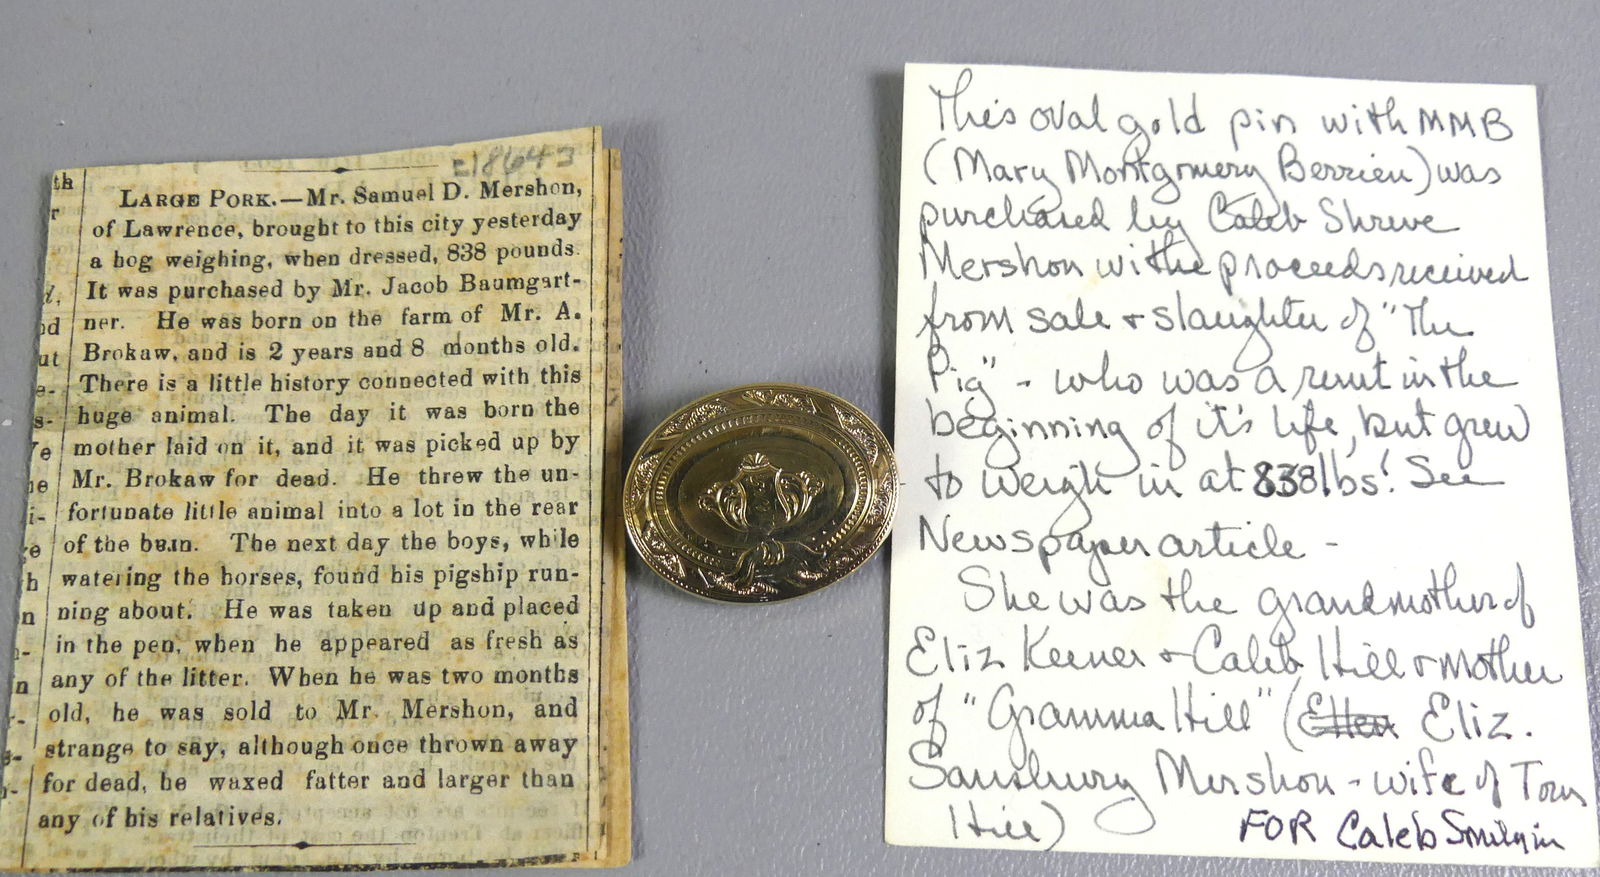 c1864-3
LARGE PORK.—Mr. Samuel D. Mershon,
of Lawrence, brought to this city yesterday
a hog weighing, when dressed, 838 pounds.
It was purchased by Mr. Jacob Baumgart-
ner. He was born on the farm of Mr. A.
Brokaw, and is 2 years and 8 months old.
There is a little history connected with this
huge animal. The day it was born the
mother laid on it, and it was picked up by
Mr. Brokaw for dead. He threw the un-
fortunate little animal into a lot in the rear
of the barn. The next day the boys, while
watering the horses, found his pigship run-
ning about. He was taken up and placed
in the pen, when he appeared as fresh as
any of the litter. When he was two months
old, he was sold to Mr. Mershon, and
strange to say, although once thrown away
for dead, he waxed fatter and larger than
any of his relatives.
This oval gold pin with MMB
(Mary Montgomery Berrien) was
purchased by Caleb Shreve
Mershon withe proceeds received
from sale + slaughter of "The
Pig" - who was a runt in the
beginning of it's life, but grew
to weigh in at 838lbs! See
Newspaper article -
She was the grandmother of
Eliz Keener + Caleb Hill + mother
of "Gramma Hill" (Ellen Eliz.
Sansbury Mershon - wife of Tom
Hill)
FOR Caleb